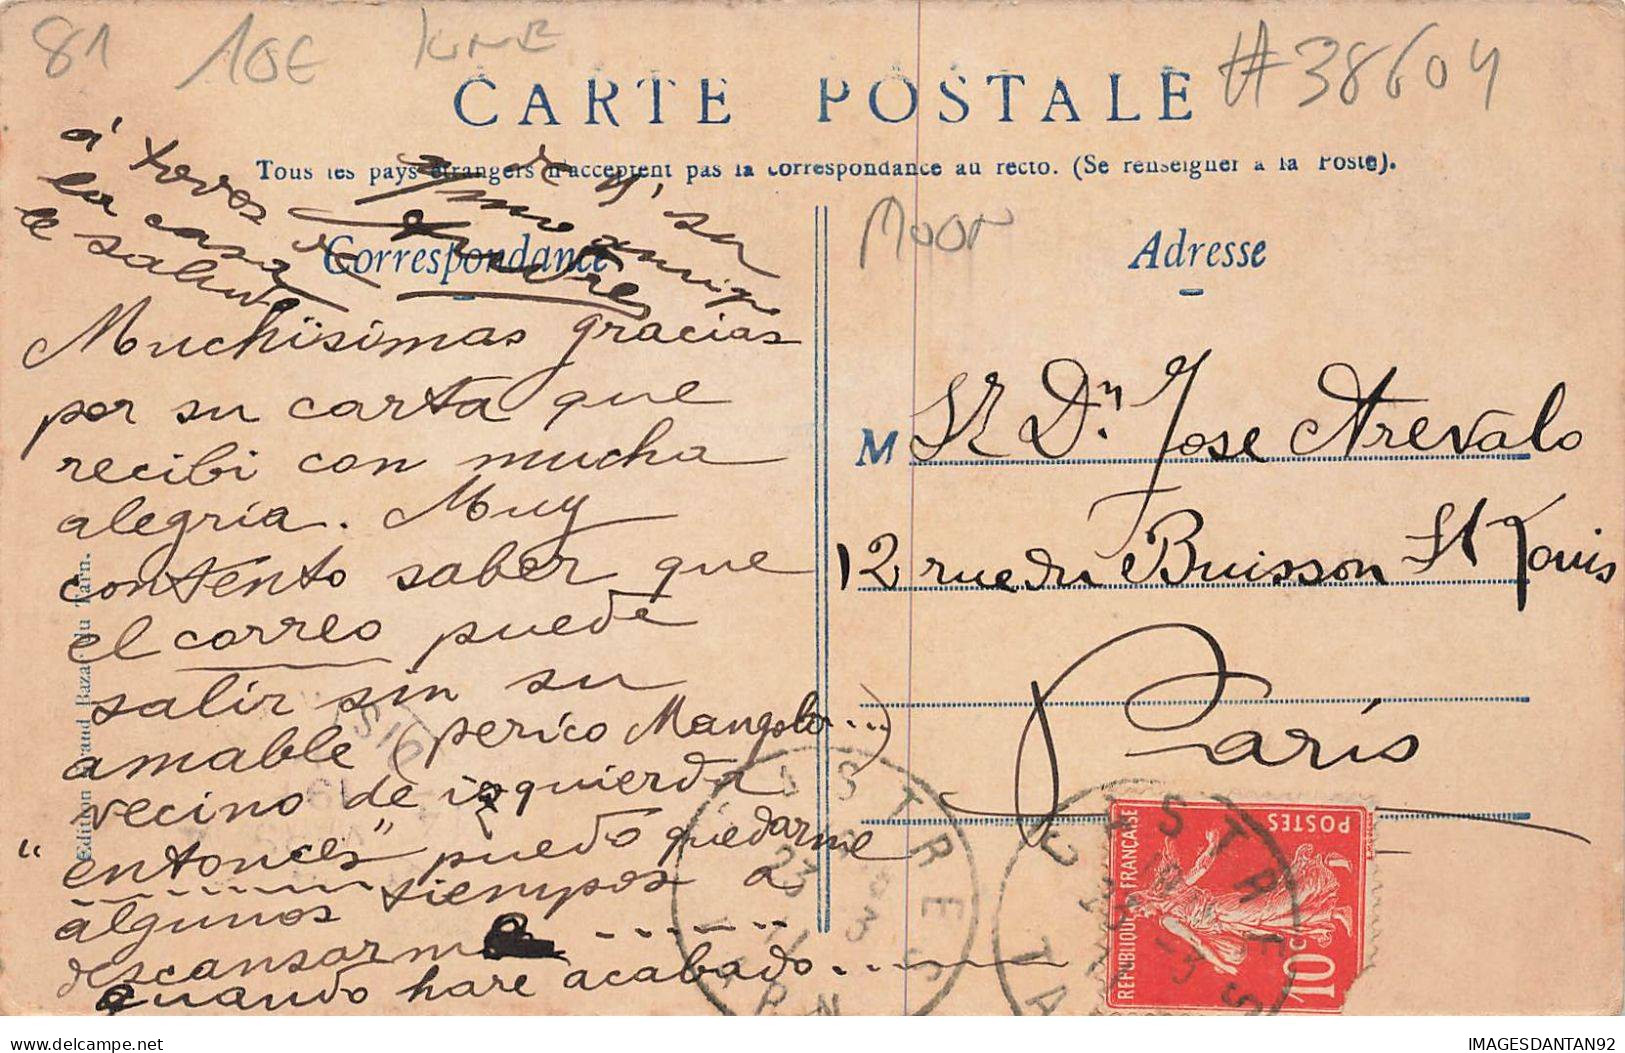 81 10E
#38604
CARTE POSTALE
Tous les pays étrangers n'acceptent pas la correspondance au recto. (Se renseigner à la Poste).
Correspondance
Adresse
MOON
á todos de
la casa
le saluda
y su
amigo
Muchísimas gracias
por su carta que
recibi con mucha
alegría. Muy
contento saber que
el correo puede
salir sin su
amable (perico Mangolo...)
vecino de izquierda
"entonces" puedo quedarme
algunos tiempos a
descansarme
quando hare acabado..
M Sr Dn Jose Arevalo
12 rue du Buisson St Louis
París
Edition Grand Bazar du Tarn.
CASTRES
TARN
23
CASTRES
TARN
REPUBLIQUE FRANÇAISE
POSTES
10c
IMAGESDANTAN92